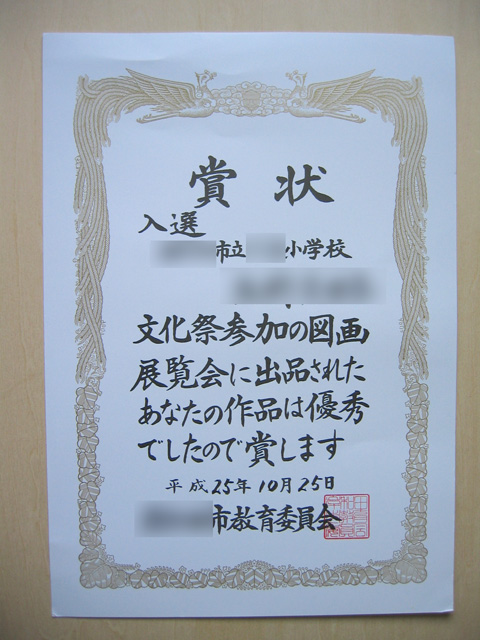 賞状
入選
市立 小学校
文化祭参加の図画
展覧会に出品された
あなたの作品は優秀
でしたので賞します
平成25年10月25日
市教育委員会